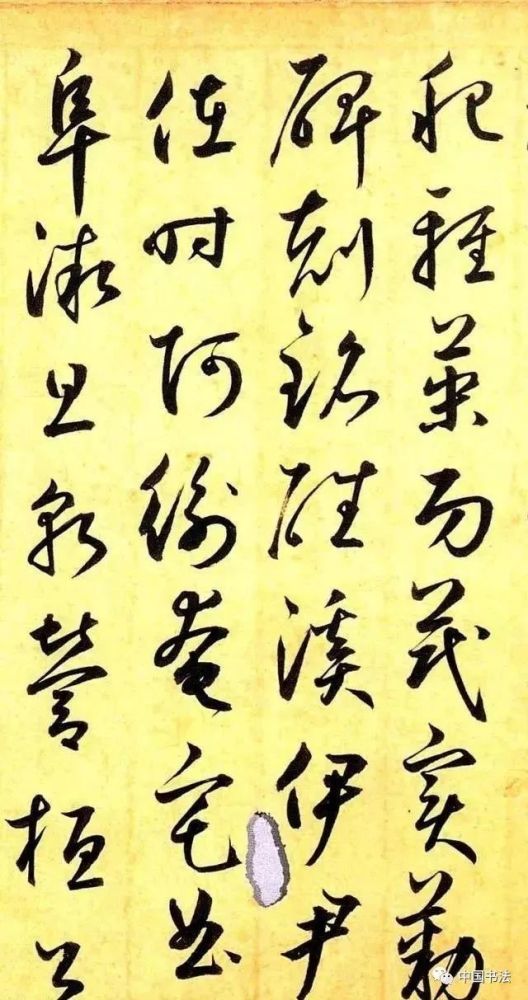 肥輕策功茂實勒
碑刻銘磻溪伊尹
佐時阿衡奄宅曲
阜微旦孰營桓公
中国书法